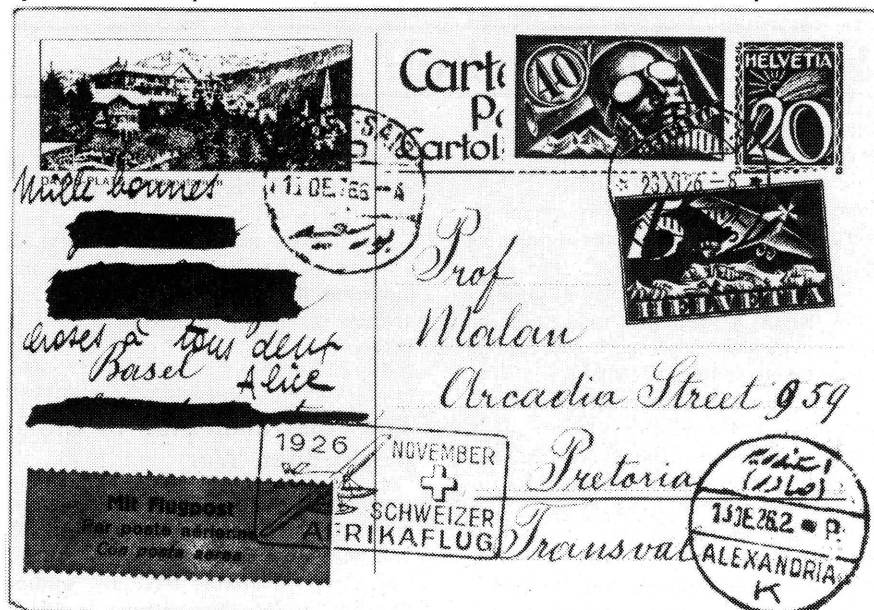 Carte
Cartol
40
HELVETIA
20
Mille bonnes
choses à tous deux
Basel Alice
23 XI 26 - 8
15
HELVETIA
Prof
Malan
Arcadia Street 959
Pretoria
Transval
1926 NOVEMBER
SCHWEIZER
AFRIKAFLUG
Mit Flugpost
Par poste aérienne
Con posta aerea
13 DE. 26. 2 - P.
ALEXANDRIA
K